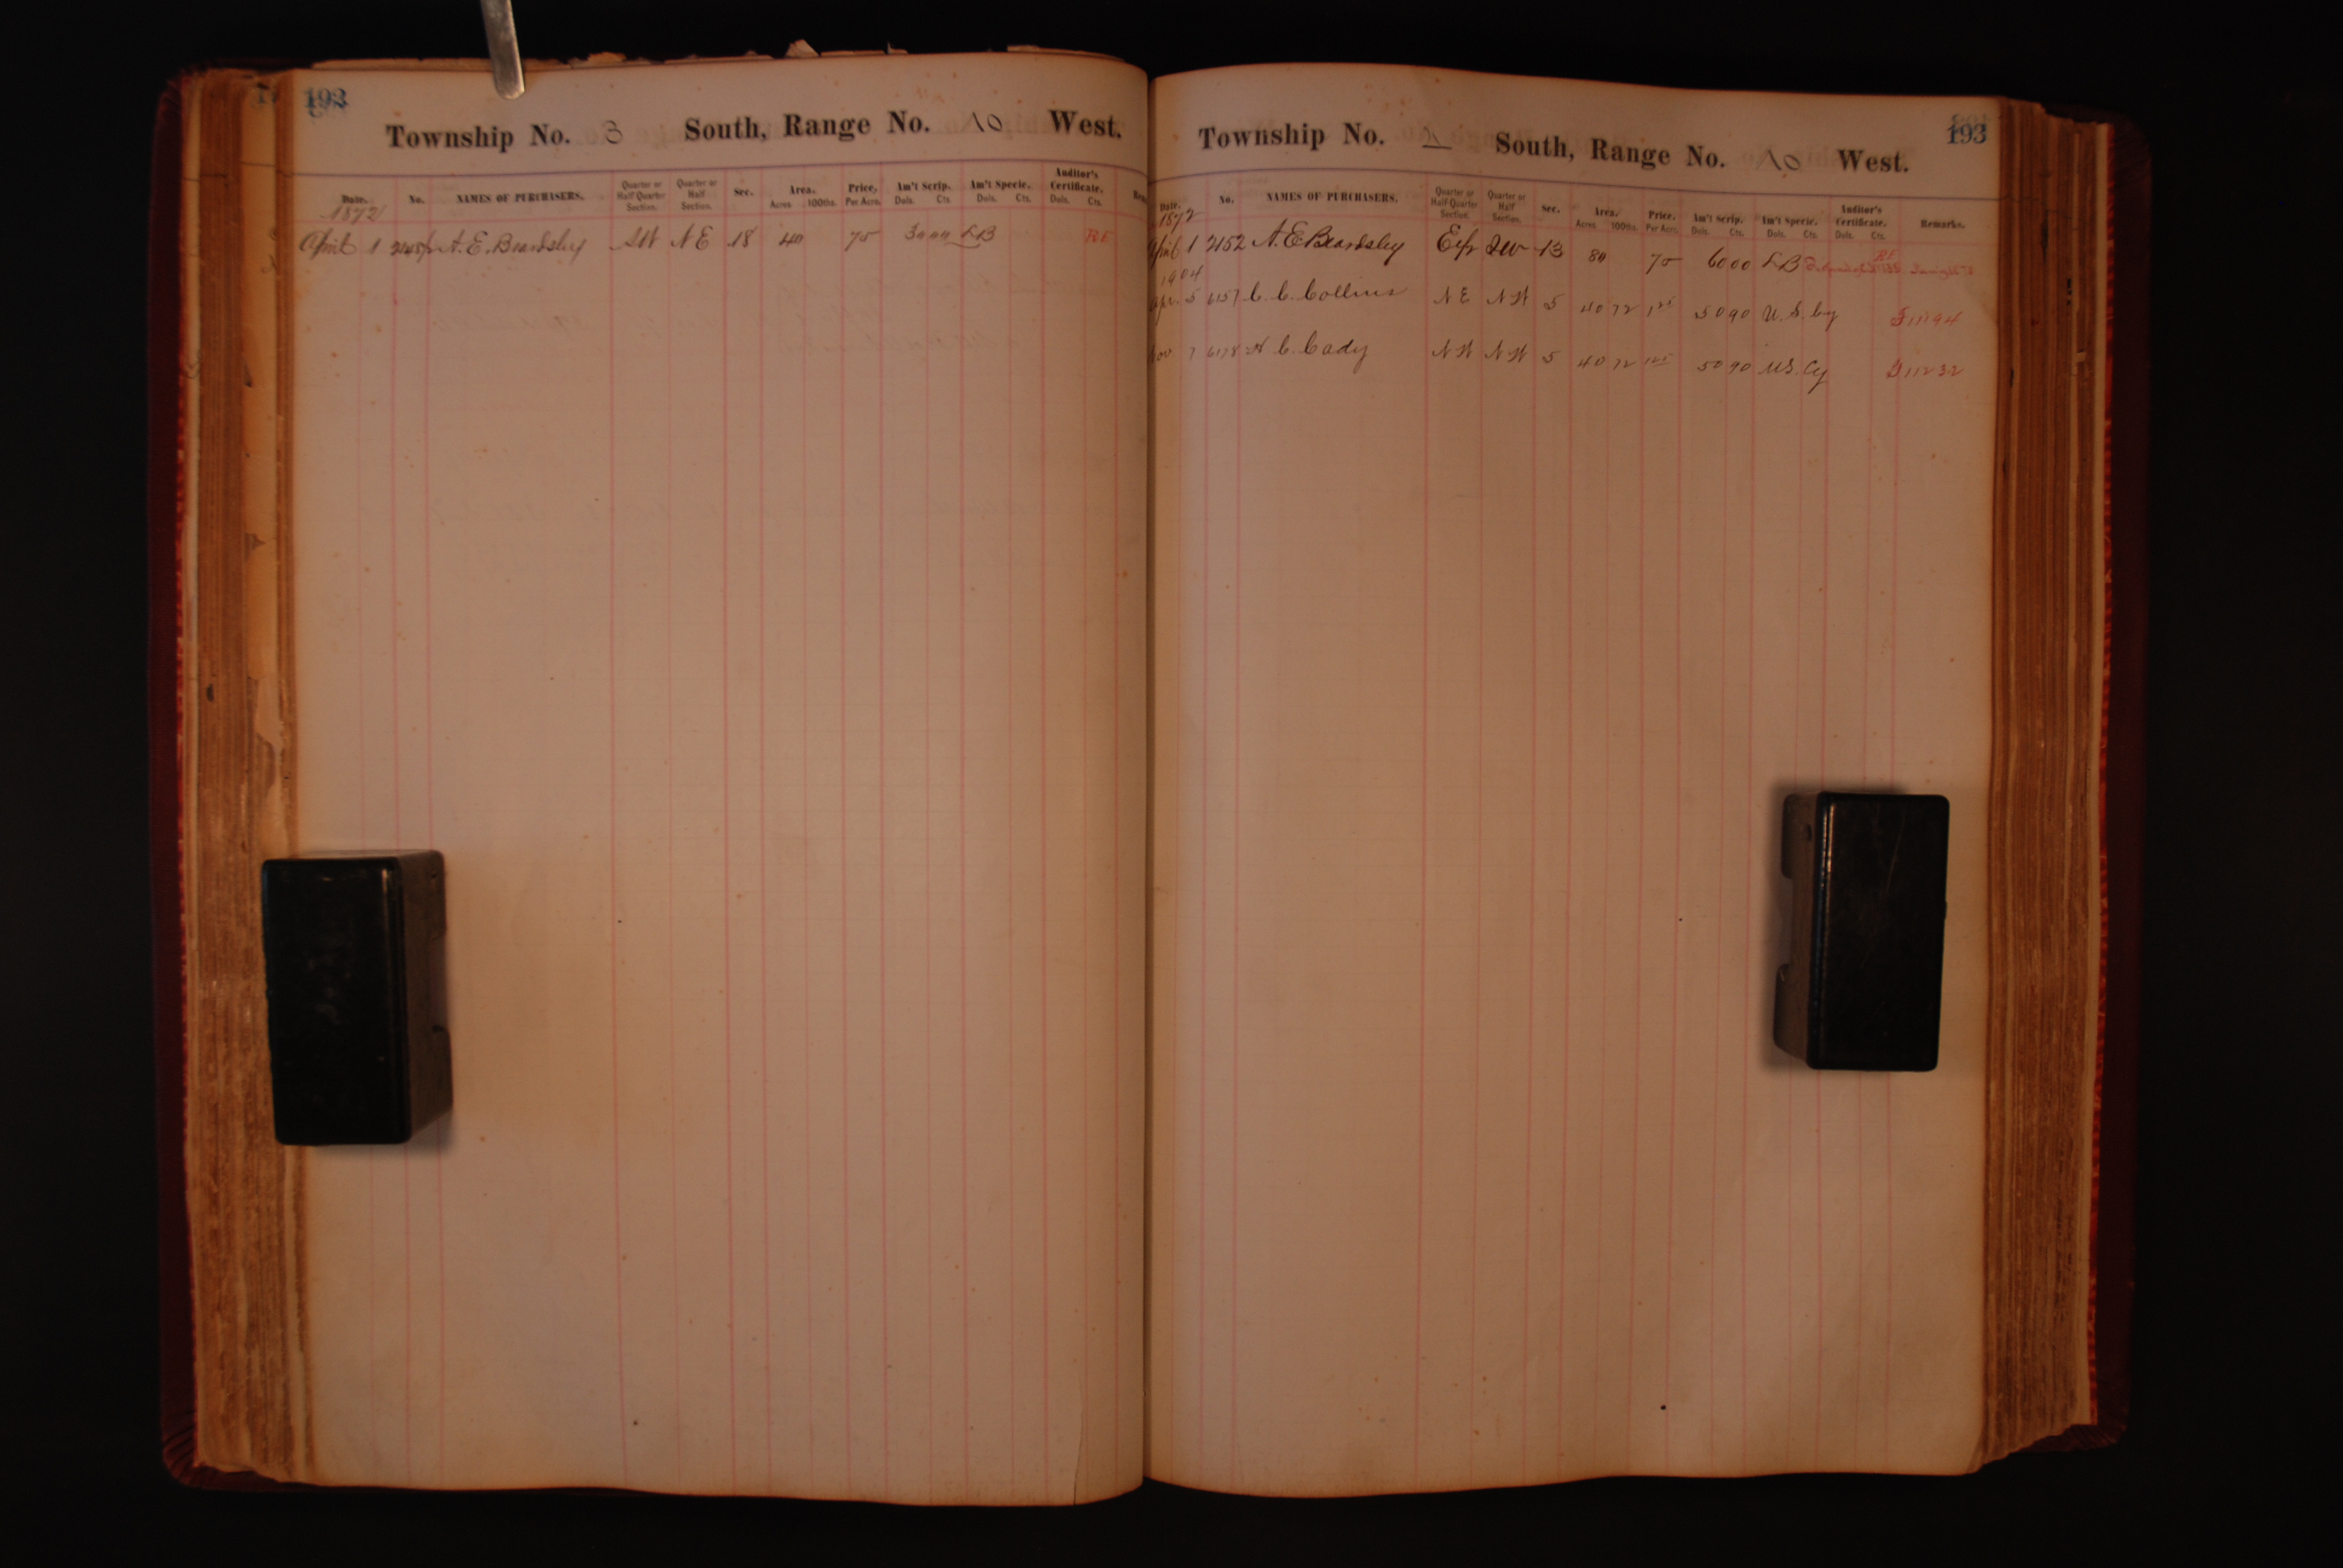 192
Township No. 3 South, Range No. 10 West.
Date. No. NAMES OF PURCHASERS. Quarter or Half Quarter Section. Quarter or Half Section. Sec. Area. Acres 100ths. Price, Per Acre. Am't Scrip. Dols. Cts Am't Specie. Dols. Cts. Auditor's Certificate. Dols. Cts.
1872
April 1 A. E. Beardsley SW NE 18 40 75 3000 LB RF
193
Township No. South, Range No. 10 West.
Date. No. NAMES OF PURCHASERS. Quarter or Half Quarter Section. Quarter or Half Section. Sec. Area. Acres 100ths. Price. Per Acre. Am't Scrip. Dols. Cts. Am't Specie. Dols. Cts. Auditor's Certificate. Dols. Cts. Remarks.
1872
April 1 2152 A. E. Beardsley 13 80 75 6000 LB RF
1904
Apr. 5 6157 C. C. Collins NE NW 5 40 72 1 25 50 90 U. S. Cy 11194
Nov 7 6178 C. Cady NW NW 5 40 72 1 25 50 90 U.S. Cy 11232